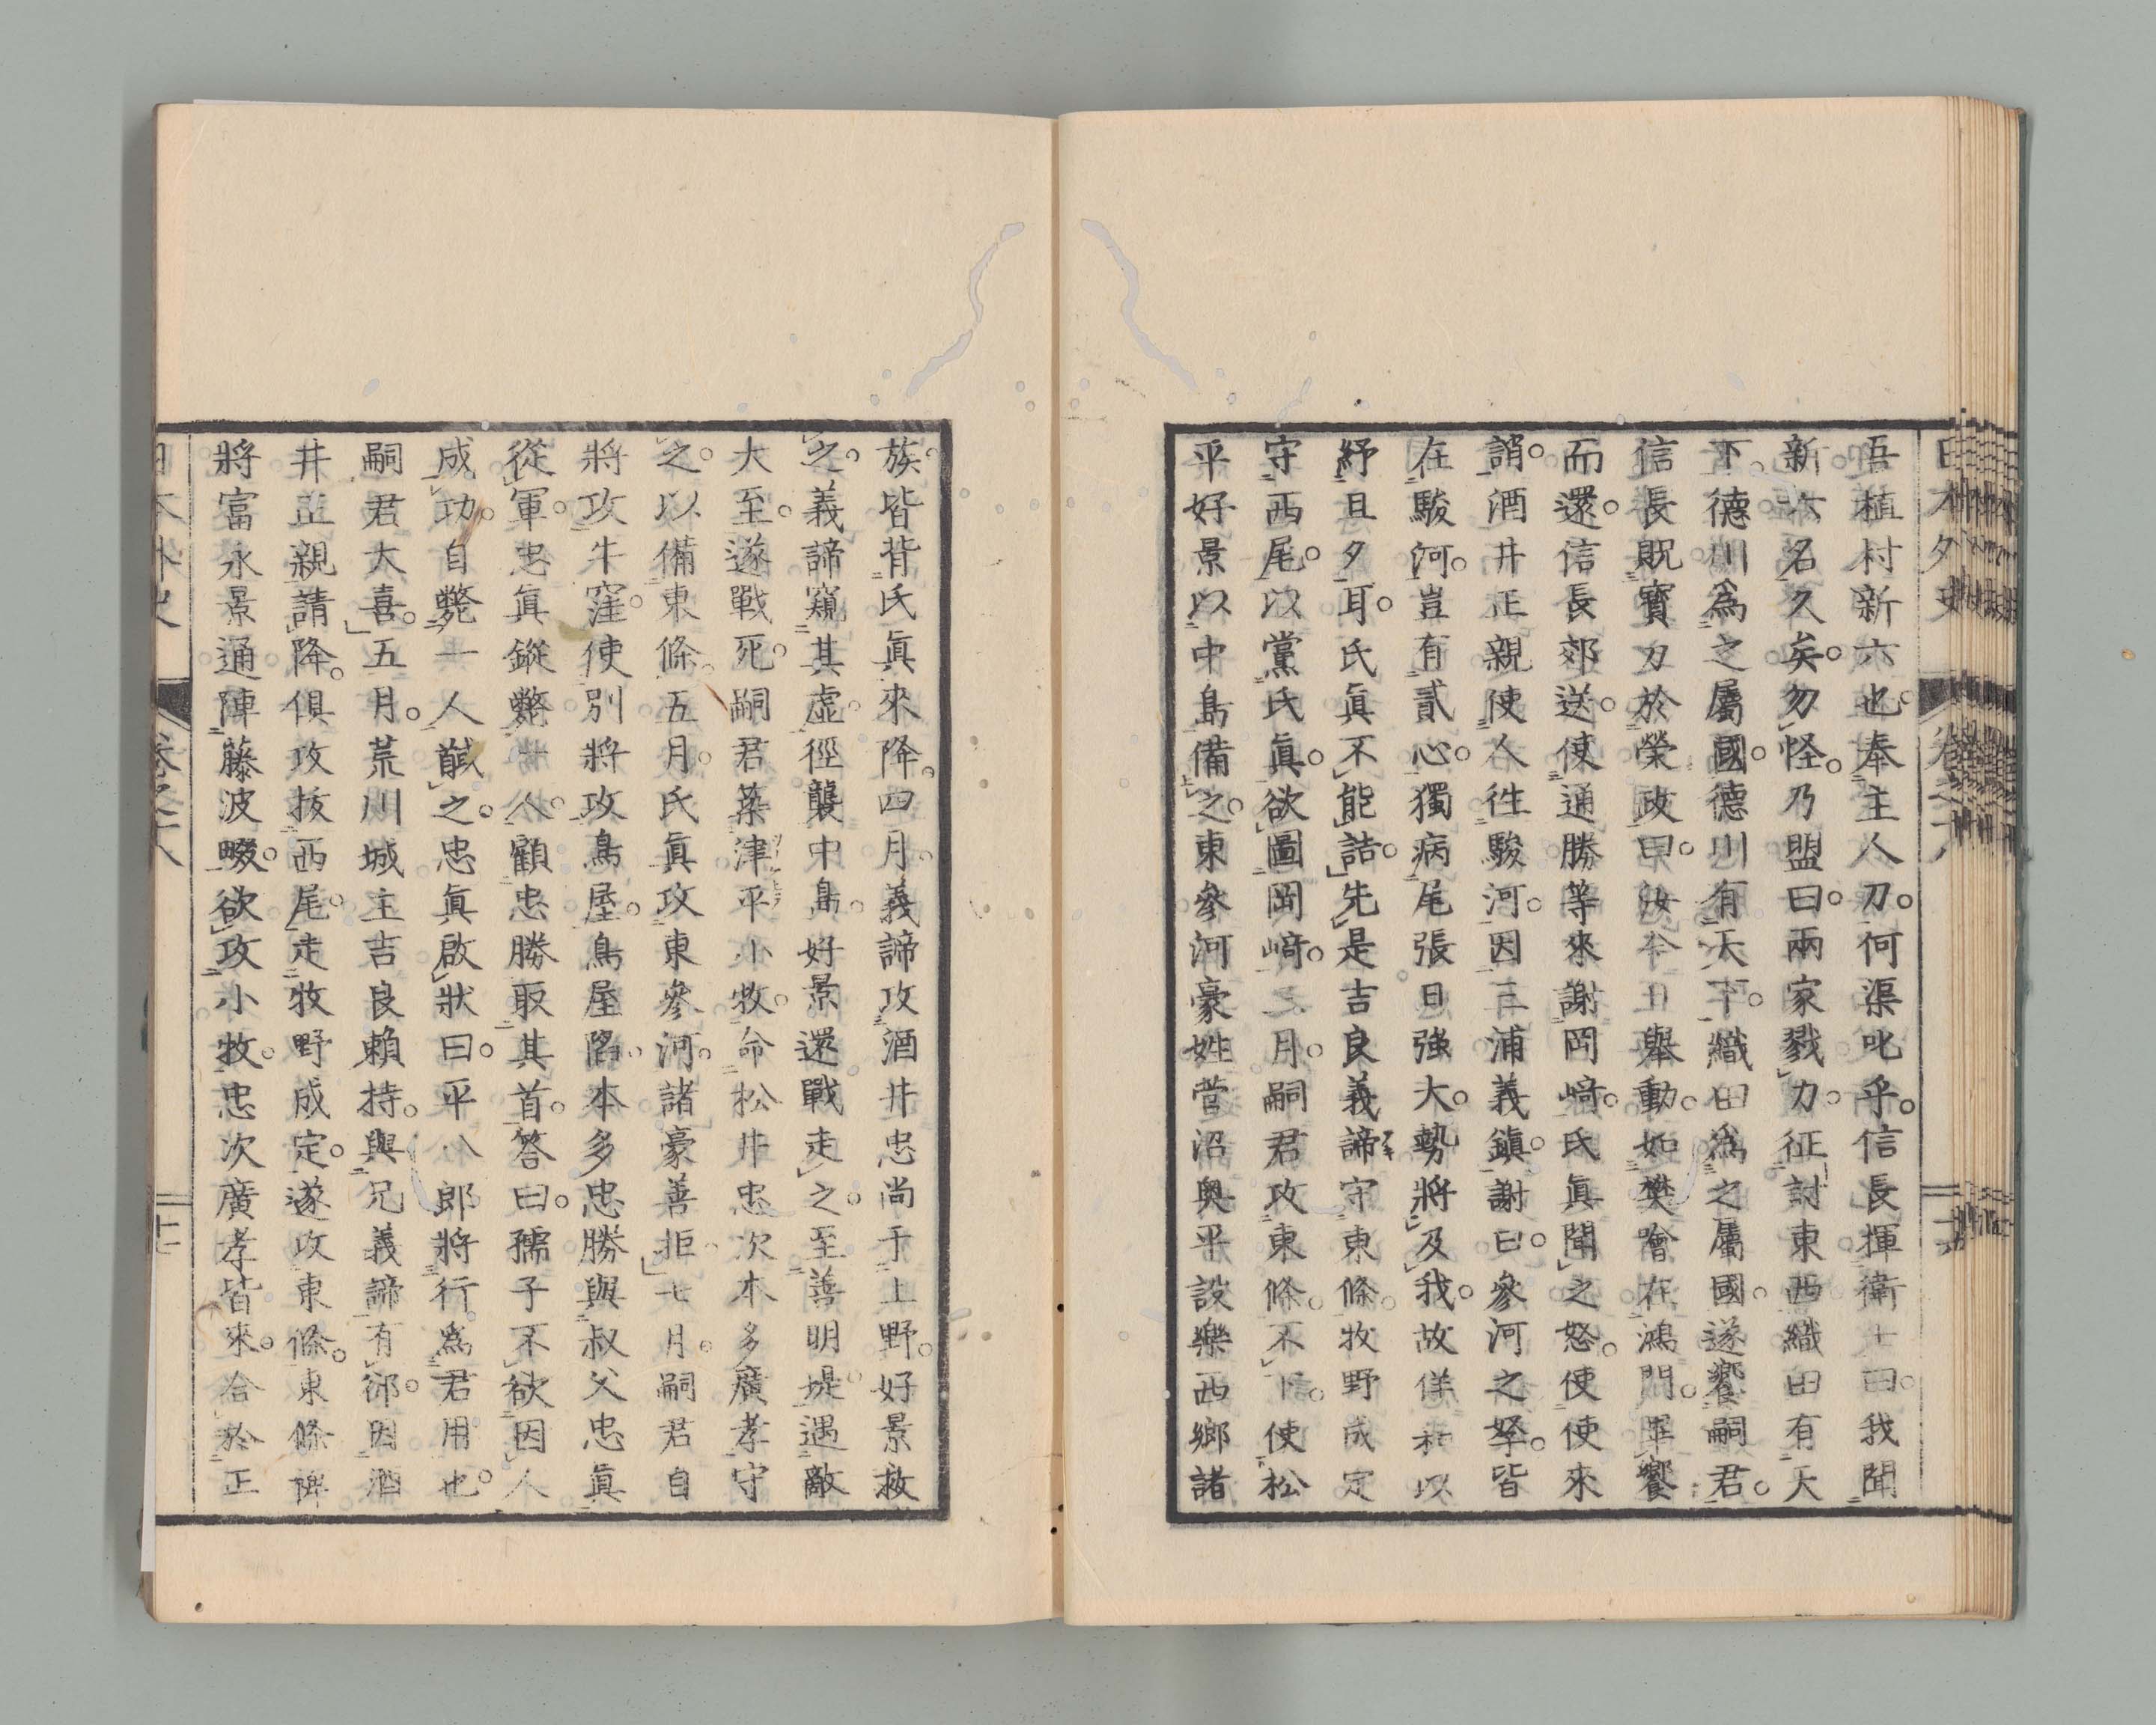 吾植村新六也。奉主人刀。何渠叱乎。信長揮衛士曰。我聞
新六名久矣。勿怪。乃盟曰。兩家戮力。征討東西。織田有天
下。德川爲之屬國。德川有天下。織田爲之屬國。遂饗嗣君。
信長貺寶刀於榮政曰。汝今日舉動。如樊噲在鴻門。畢饗
而還。信長郊送。使通勝等來謝岡﨑。氏眞聞之怒。使使來
誚。酒井正親使人徃駿河。因三浦義鎭。謝曰。參河之孥。皆
在駿河。豈有貳心。獨病尾張日強大。勢將及我。故佯和以
紓旦夕耳。氏眞不能詰。先是吉良義諦守東條。牧野成定
守西尾。以黨氏眞。欲圖岡﨑。三月。嗣君攻東條。不下。使松
平好景以中島備之。東參河豪姓菅沼奥平設樂西鄉諸
族。皆背氏眞來降。四月。義諦攻酒井忠尚于上野。好景救
之。義諦窺其虛。徑襲中島。好景還戰走之。至善明堤。遇敵
大至。遂戰死。嗣君築津平小牧。命松井忠次本多廣孝守
之。以備東條。五月。氏眞攻東參河。諸豪善拒。七月。嗣君自
將攻牛窪。使別將攻鳥屋。鳥屋陷。本多忠勝與叔父忠眞
從軍。忠眞鏦斃一人。顧忠勝取其首。答曰。孺子不欲因人
成功。自斃一人馘之。忠眞啟狀曰。平八郎將行爲君用也。
嗣君大喜。五月。荒川城主吉良賴持。與兄義諦有郤。因酒
井正親請降。俱攻拔西尾。走牧野成定。遂攻東條。東條裨
將富永景通陣藤波畷。欲攻小牧。忠次廣孝皆來。合於正
日本外史 卷之十八